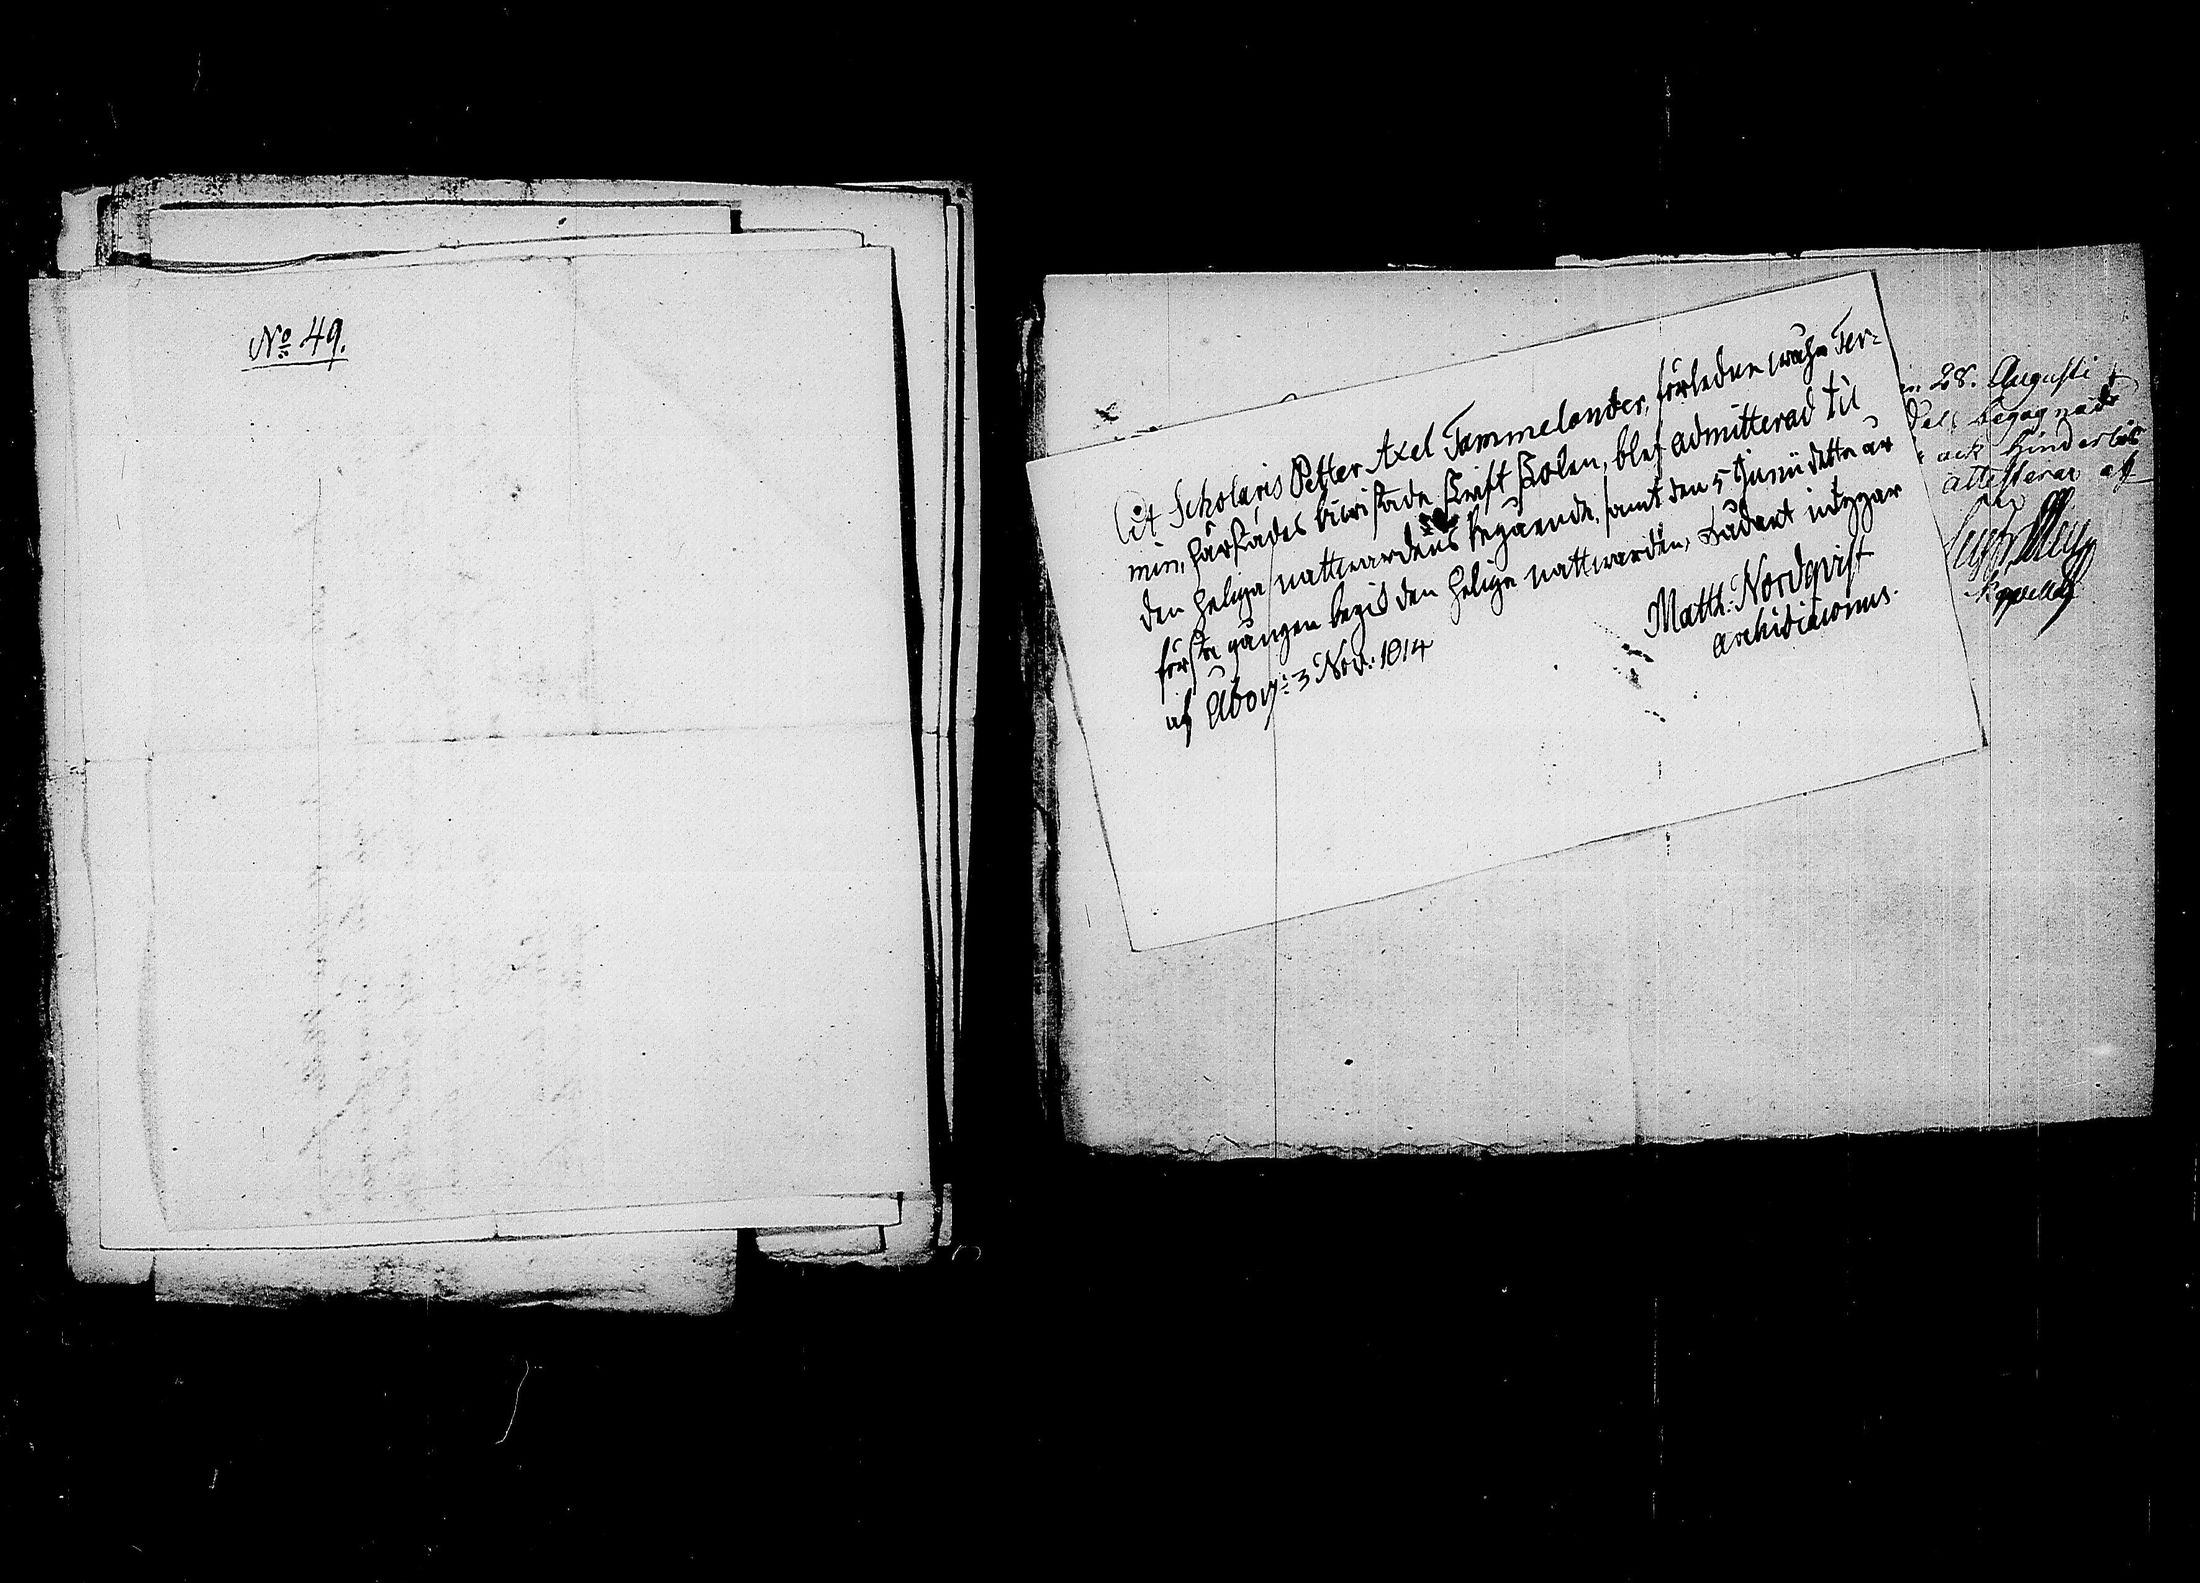 No 49.
At Scholaris Petter Axel Tammelander, förleden Ter=
min, härstädes biwistade Skrift Skolen, blef admitterad til
den heliga nattwardens begående, samt den 5 Junii detta år
första gången begik den heliga nattwarden, intygar
af Åbo 3 Nov: 1814
Matth: Nordqvist
Archidiaconus.
28. Augusti
begagnade
ock hinderlös
attesterar af